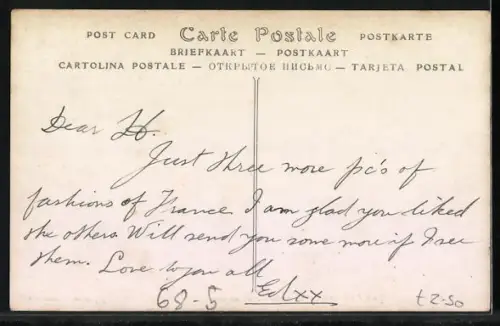 POST CARD Carte Postale POSTKARTE
BRIEFKAART — POSTKAART
CARTOLINA POSTALE — ОТКРЫТОЕ ПИСЬМО — TARJETA POSTAL
Dear H.
Just three more pc's of
fashions of France I am glad you liked
the others Will send you some more if I see
them. Love to you all
Ed xx
68-5
£2-50